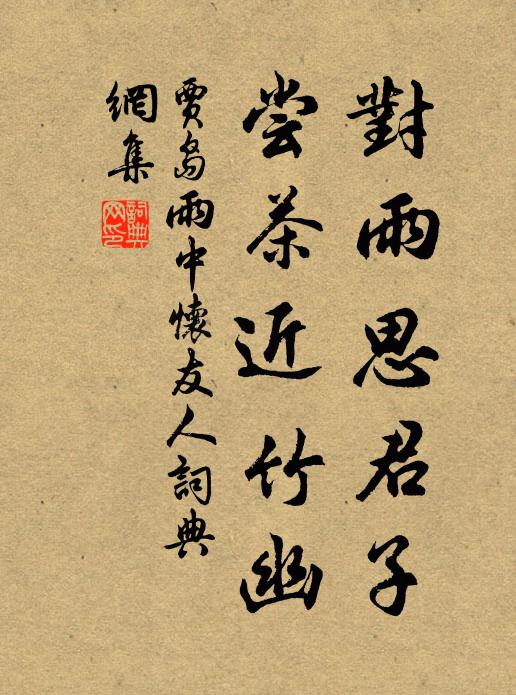 對雨思君子
嘗茶近竹幽
賈島雨中懷友人詞典
網集
詞典網印